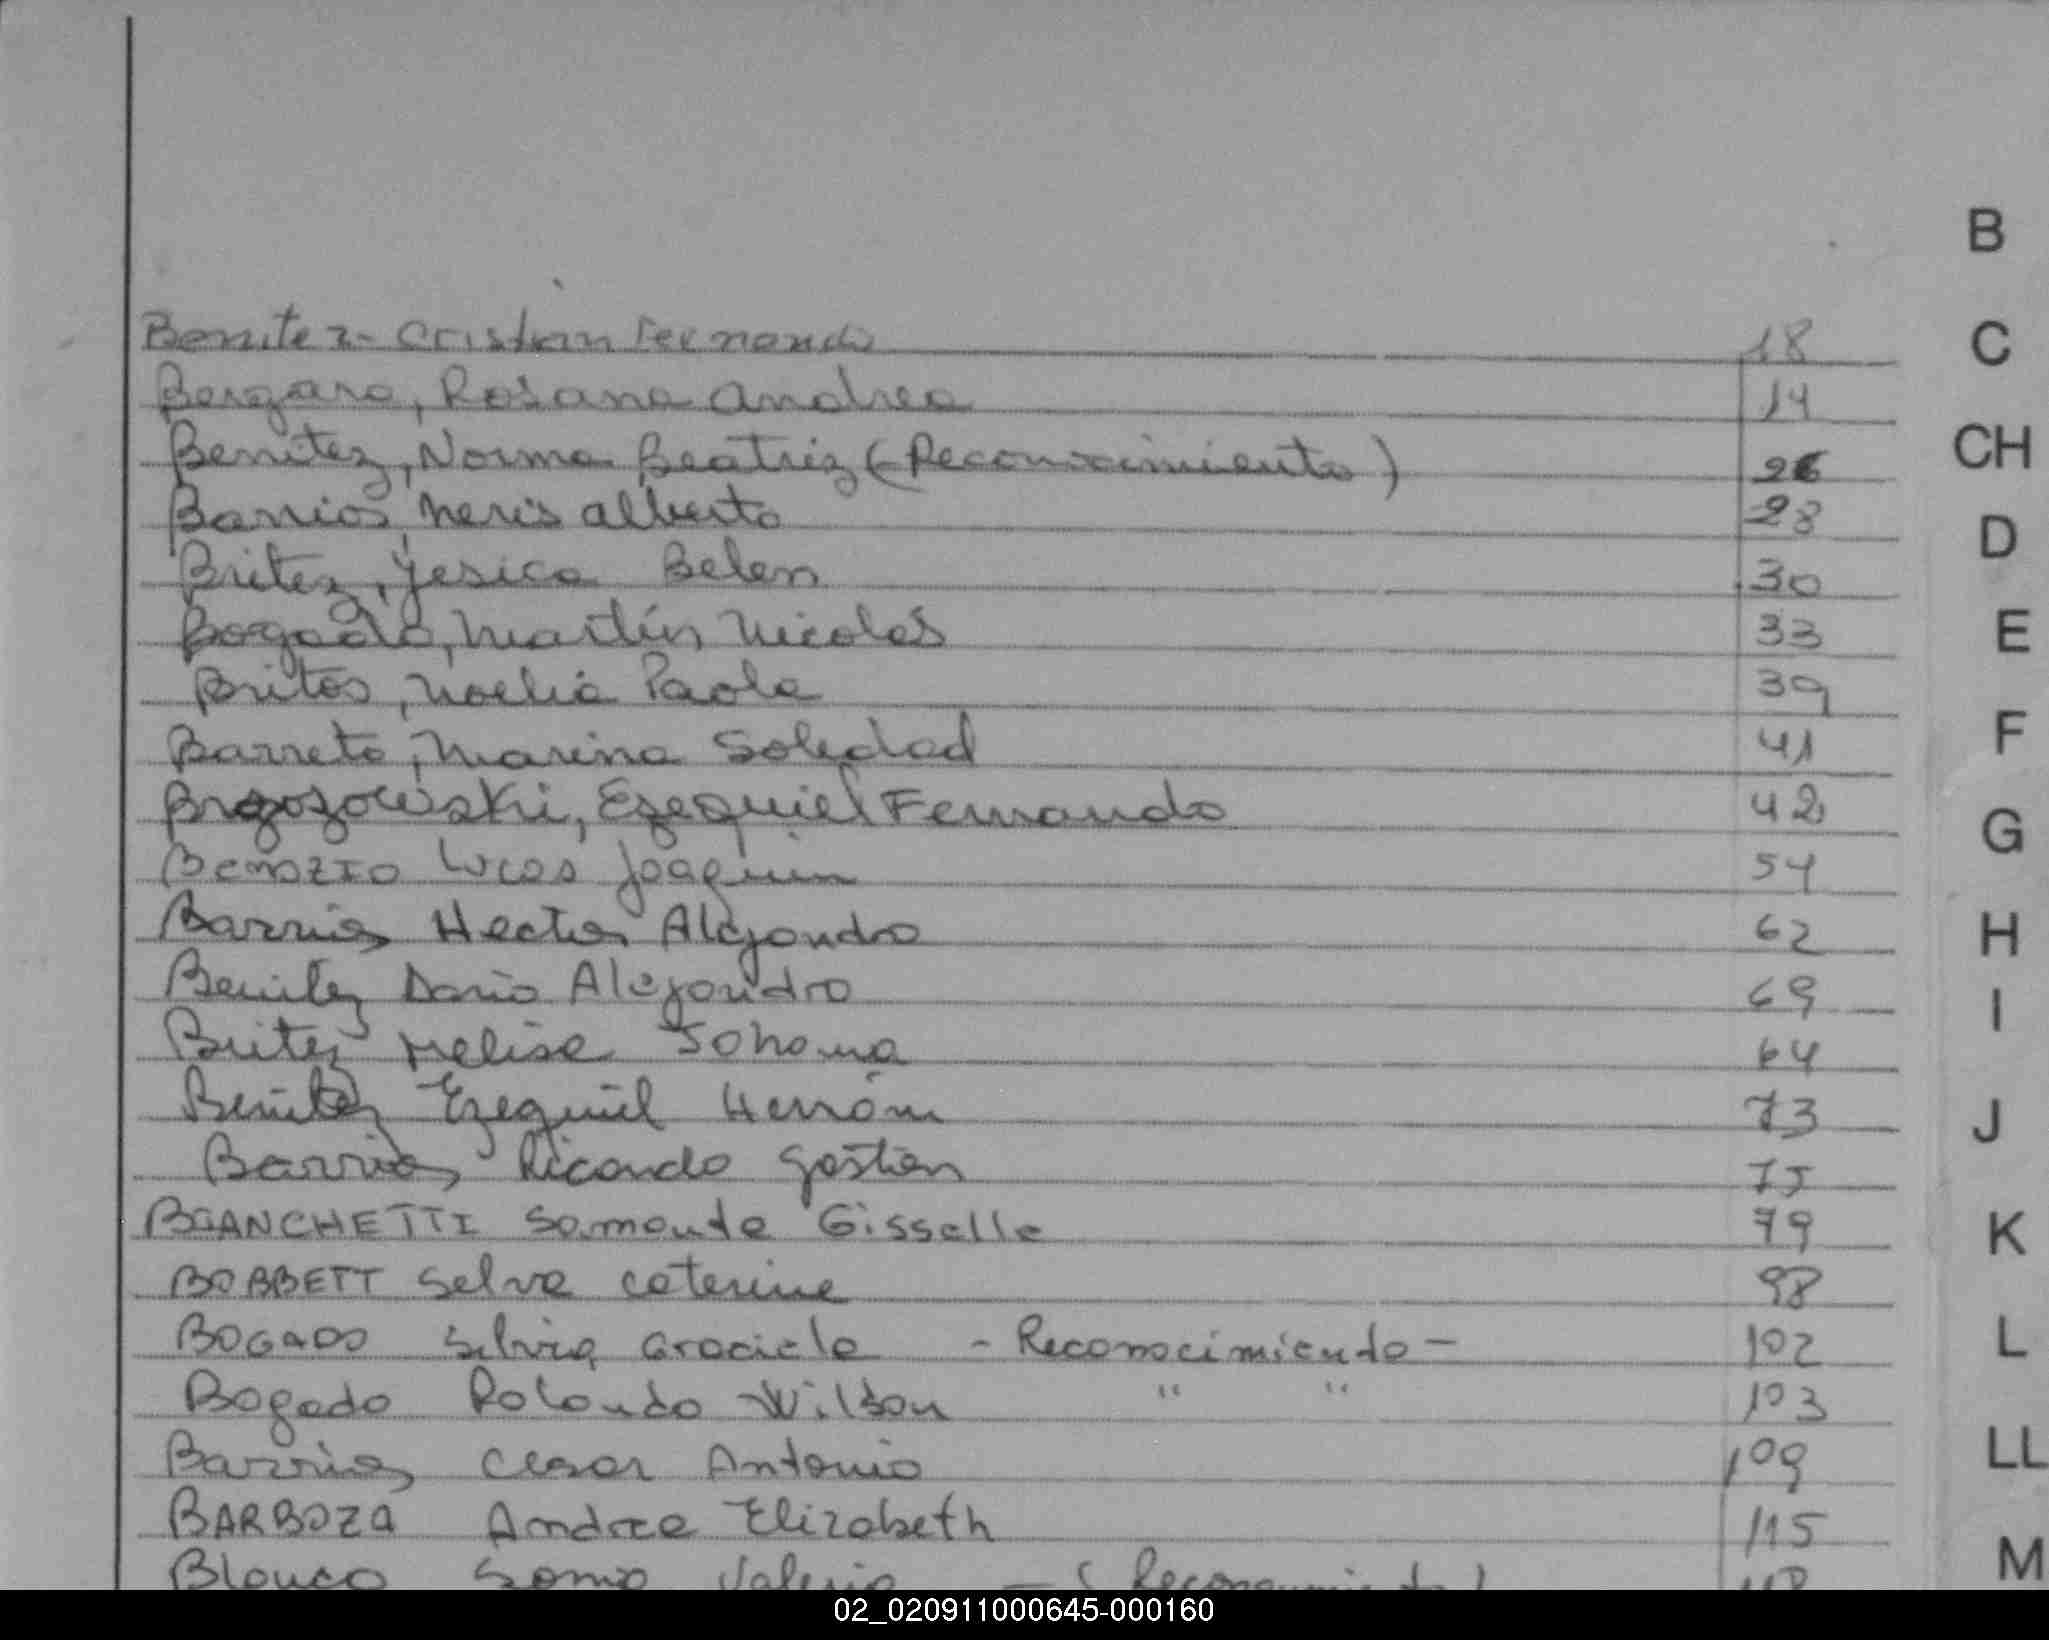 Benitez - Cristian Fernando 18
Bergara, Rosana Andrea 14
Benitez, Norma Beatriz (Reconocimiento) 26
Barrios, Neris Alberto 28
Britez, Yesica Belen 30
Bogado, Martín Nicolas 33
Britos, Noelia Paola 39
Barreto, Marina Soledad 41
Brozozowski, Ezequiel Fernando 42
Lucas Joaquin 54
Barrios Hector Alejandro 62
Benitez Dario Alejandro 69
Britez Melisa Johana 64
Benitez Ezequiel Hernán 73
Barrios Ricardo Gastón 75
BIANCHETTI Samanta Gisselle 79
BOBBETT Selva Caterine 98
BOGADO Silvia Graciela - Reconocimiento - 102
Bogado Rolando Wilson " " 103
Barrios Cesar Antonio 109
BARBOZA Andrea Elizabeth 115
Blanco Sonia Valeria - (Reconocimiento)
B
C
CH
D
E
F
G
H
I
J
K
L
LL
M
02_020911000645-000160